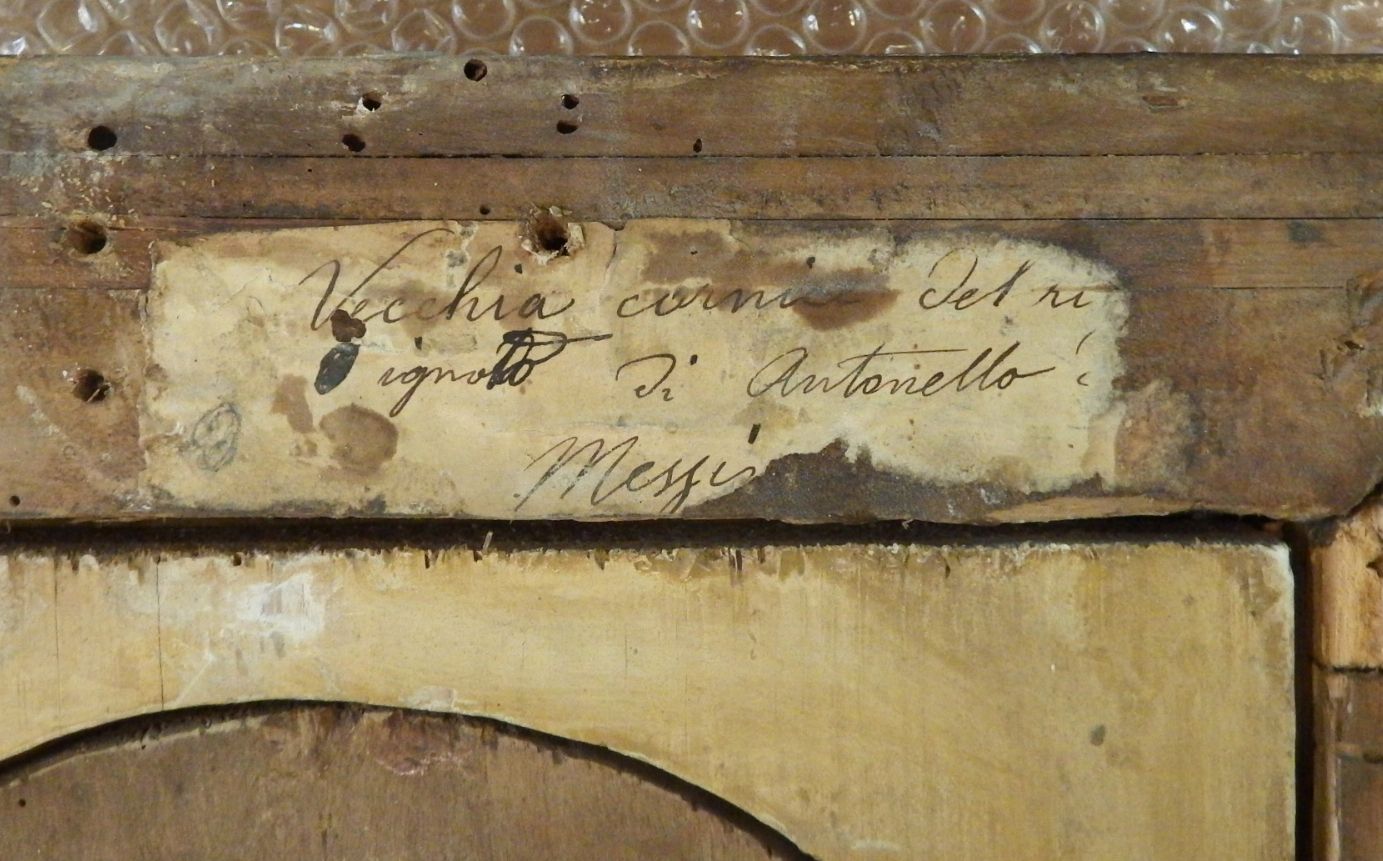 Vecchia corni del ri
ignoto di Antonello
Messi